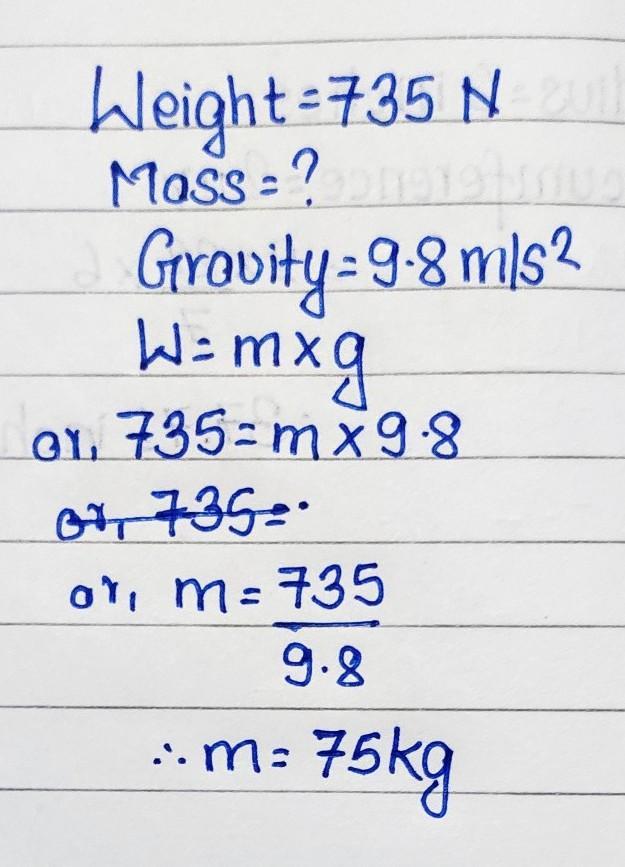 Weight=735 N
Mass=?
Gravity=9.8 m/s²
W=m×g
or, 735=m×9.8
or, 735=.
or, m=735
9.8
∴m=75kg